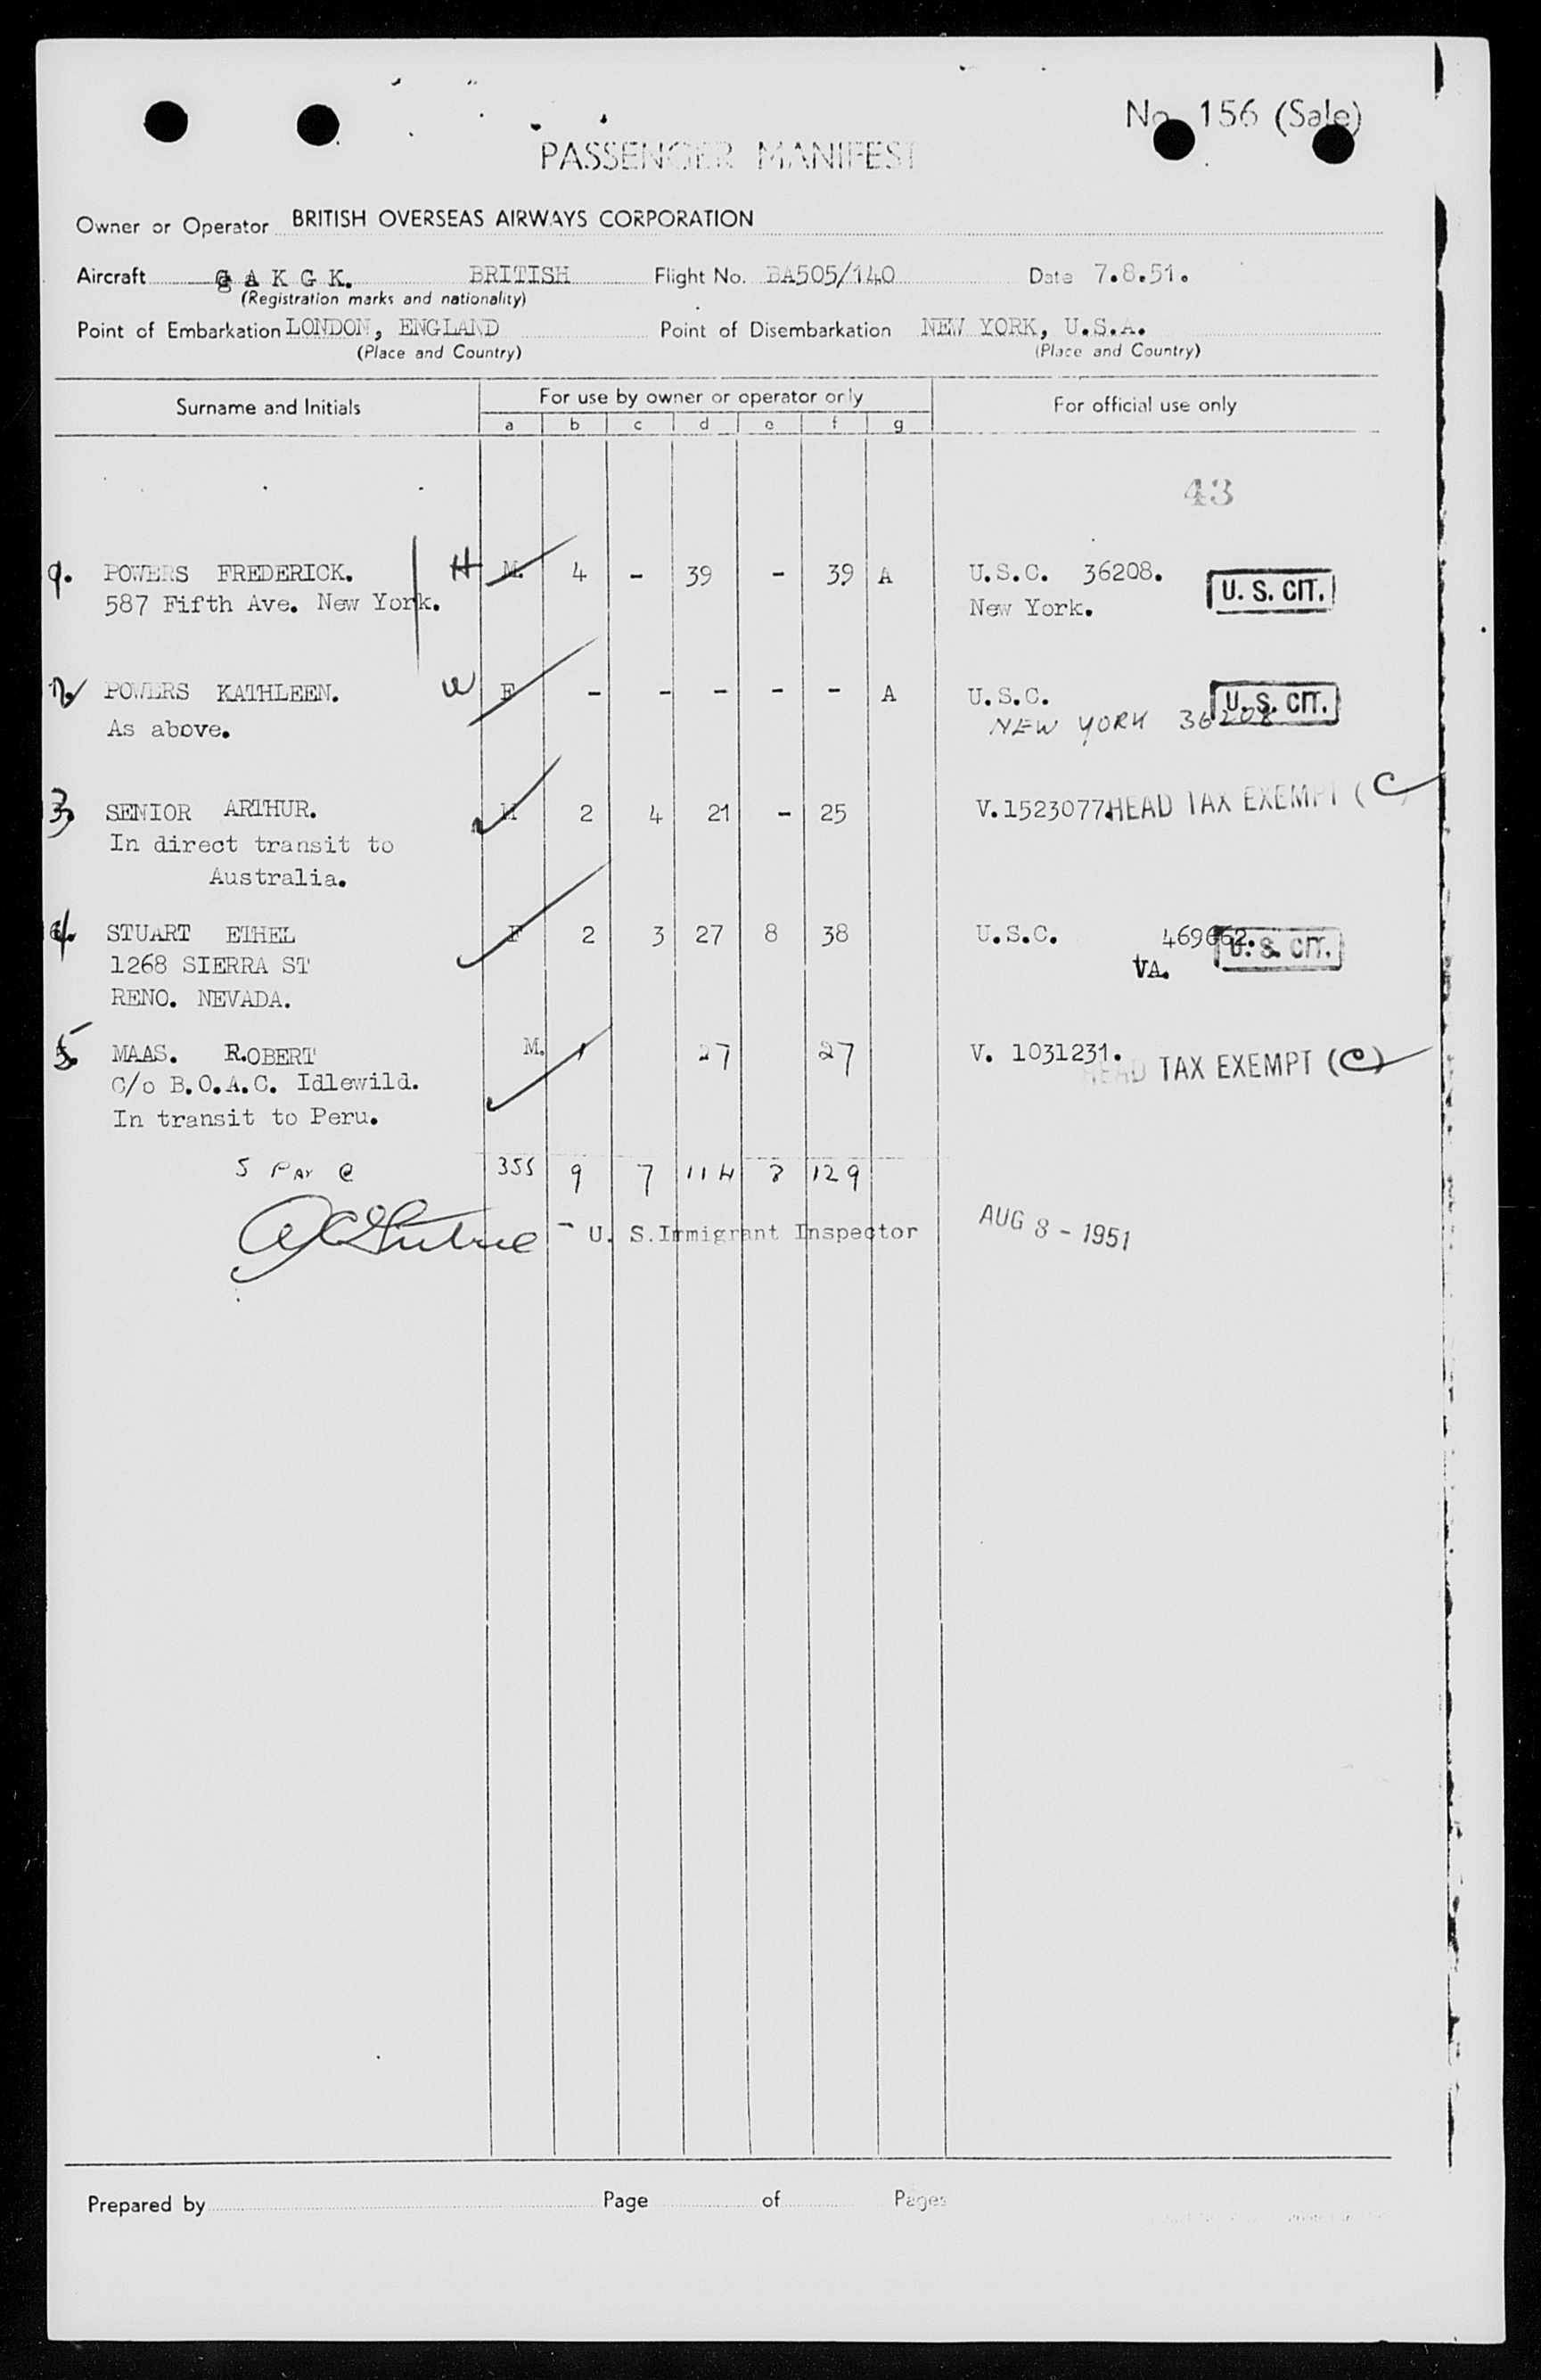 No. 156 (Sale)
PASSENGER MANIFEST
Owner or Operator BRITISH OVERSEAS AIRWAYS CORPORATION
Aircraft G A K G K. BRITISH Flight No. BA505/140 Date 7.8.51.
(Registration marks and nationality)
Point of Embarkation LONDON, ENGLAND Point of Disembarkation NEW YORK, U.S.A.
(Place and Country) (Place and Country)
Surname and Initials For use by owner or operator only For official use only
a b c d e f g
43
POWERS FREDERICK. H M. 4 - 39 - 39 A U.S.C. 36208. U. S. CIT.
587 Fifth Ave. New York. New York.
POWERS KATHLEEN. W F - - - - - A U.S.C. U. S. CIT.
As above. NEW YORK 36208
3 SENIOR ARTHUR. M 2 4 21 - 25 V.1523077. HEAD TAX EXEMPT (C)
In direct transit to
Australia.
4. STUART ETHEL F 2 3 27 8 38 U.S.C. 469662. U. S. CIT.
1268 SIERRA ST VA.
RENO. NEVADA.
5. MAAS. ROBERT M. 1 27 27 V. 1031231.
C/o B.O.A.C. Idlewild. HEAD TAX EXEMPT (C)
In transit to Peru.
5 9 7 114 8 129
- U. S. Immigrant Inspector AUG 8 - 1951
Prepared by Page of Pages